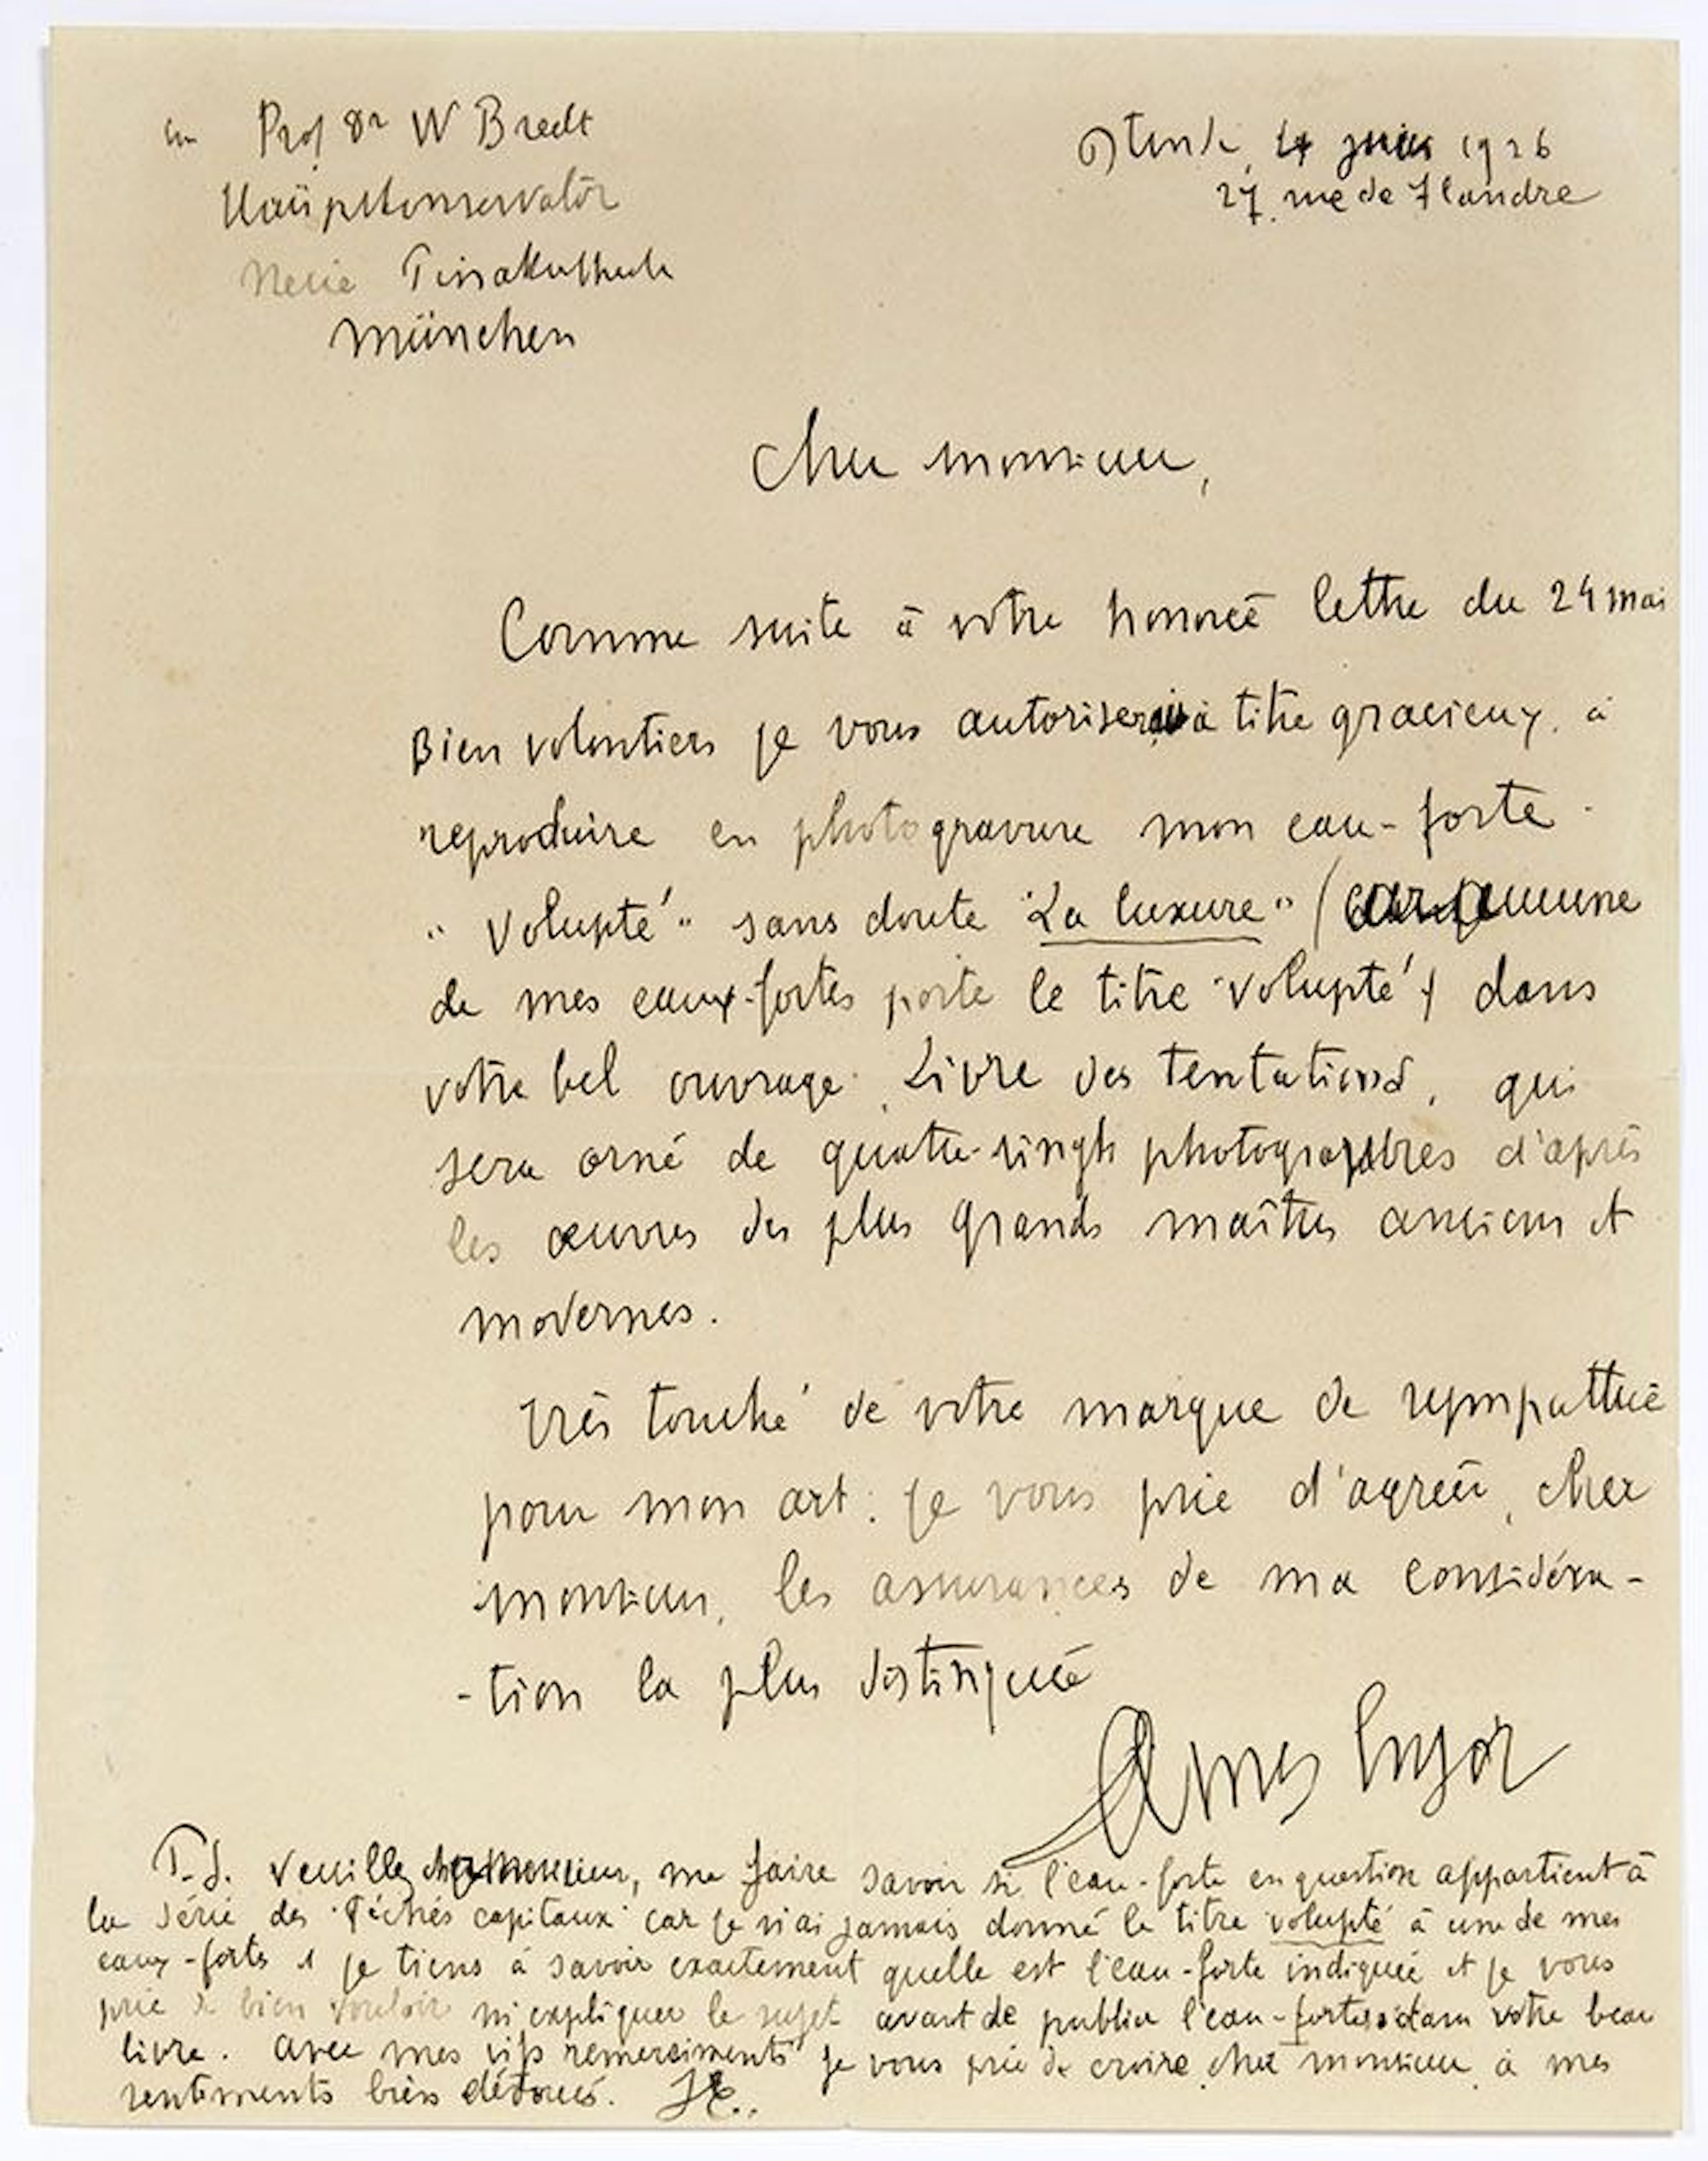 Prof Dr W Bredt
Ostende, 4 juin 1926
27. rue de Flandre
Hauptkonservator
Neue Pinakothek
München
Cher monsieur,
Comme suite à votre honorée lettre du 24 mai
Bien volontiers je vous autoriserais à titre gracieux, à
reproduire en photogravure mon eau-forte
"Volupté" sans doute "La luxure" (car aucune
de mes eaux-fortes porte le titre "volupté") dans
votre bel ouvrage "Livre des tentations", qui
sera orné de quatre-vingts photogravures d'après
les œuvres des plus grands maîtres anciens et
modernes.
Très touché de votre marque de sympathie
pour mon art: je vous prie d'agréer, cher
monsieur, les assurances de ma considéra-
-tion la plus distinguée
James Ensor
P.S. Veuillez cher monsieur, me faire savoir si l'eau-forte en question appartient à
la série des "Péchés capitaux" car je n'ai jamais donné le titre volupté à une de mes
eaux-fortes et je tiens à savoir exactement quelle est l'eau-forte indiquée et je vous
prie de bien vouloir m'expliquer le sujet avant de publier l'eau-forte dans votre beau
livre. Avec mes vifs remerciements je vous prie de croire, cher monsieur, à mes
sentiments bien dévoués. JE..